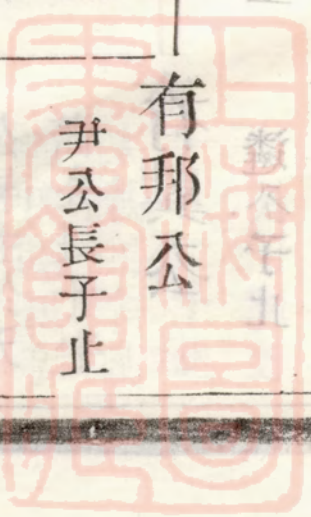 有邦公
尹公長子止